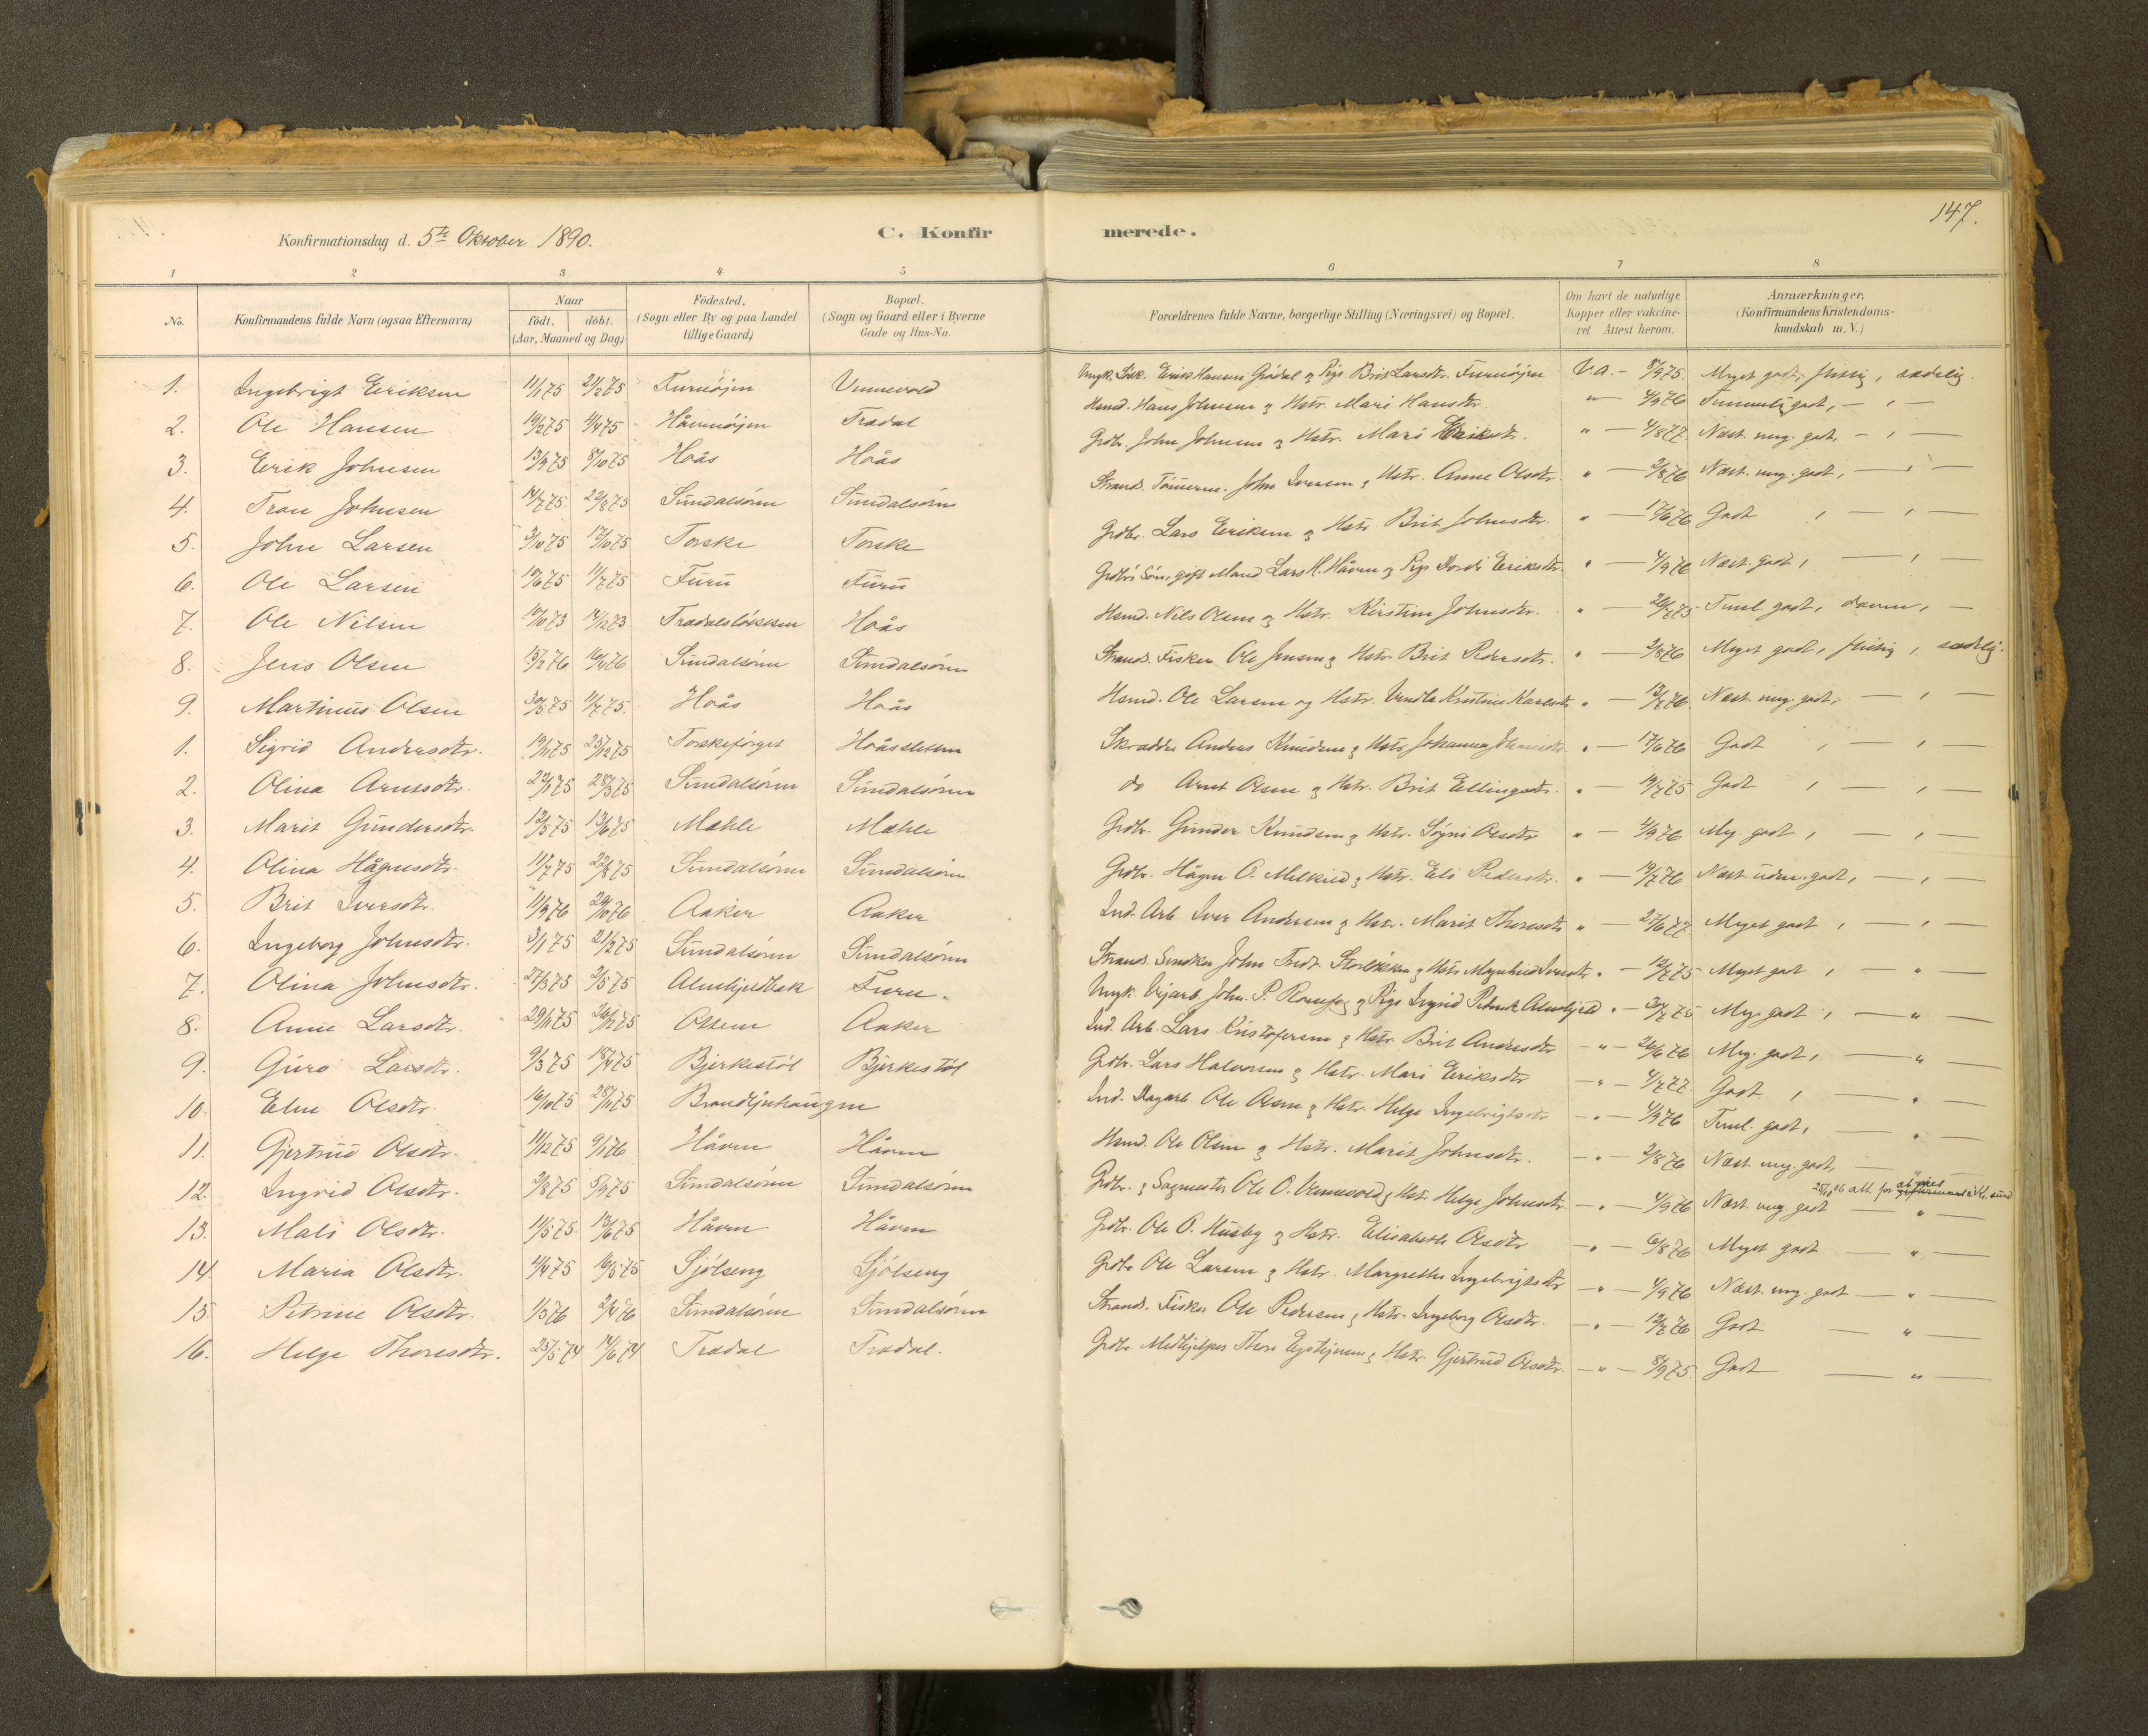 147.
Konfirmationsdag d. 5te Oktober 1890. C. Konfirmerede.
1 2 3 4 5 6 7 8
No. Konfirmandens fulde Navn (ogsaa Efternavn) Naar födt. döbt. (Aar, Maaned og Dag) Födested. (Sogn eller By og paa Landet tillige Gaard) Bopæl. (Sogn og Gaard eller i Byerne Gade og Hus-No. Forældrenes fulde Navne, borgerlige Stilling (Næringsvei) og Bopæl. Om havt de naturlige Kopper eller vakcineret Attest herom. Anmærkninger. (Konfirmandens Kristendomskundskab m. V.)
1. Ingebrigt Eriksen 11/1 75 21/2 75 Furuöjen Vennevold Ungk. Erik Hansen Grödal og Pige Brit Larsdtr. Furuöjen V.a. - 8/9 75. Meget godt, flittig, sædelig.
2. Ole Hansen 19/2 75 4/4 75 Håvenöjen Tradal Hsmd. Hans Johnsen og Hstr. Mari Hansdtr. " - 4/9 76 Temmelig godt, - , -
3. Erik Johnsen 13/9 75 8/10 75 Hoås Hoås Grdbr. John Johnsen og Hstr. Mari Eriksdtr. " - 4/8 77. Næst. meg. godt, - , -
4. Tron Johnsen 14/7 75. 22/8 75 Sundalsören Sundalsören Strands. Tömerm. John Iversen og Hstr. Anne Olsdtr. " - 2/8 76 Næst. meg. godt, - , -
5. John Larsen 3/10 75 17/10 75 Torske Torske Grdbr. Lars Eriksen og Hstr. Brit Johnsdtr. " - 17/6 76 Godt , - , -
6. Ole Larsen 10/6 75 11/7 75 Furu Furu Grdbrs Sön, gift Mand Lars H. Håven og Pige Dordi Eriksdtr. " - 4/9 76 Næst. godt, - , -
7. Ole Nilsen 10/10 73 14/12 73 Tradalslökken Hoås Hsmd. Nils Olsen og Hstr. Kirstine Johnsdtr. " - 20/7 75 Teml. godt, doven, -
8. Jens Olsen 15/2 76 16/4 76 Sundalsören Sundalsören Strands. Fisker Ole Jensen og Hstr. Brit Pedersdtr. " - 2/8 76 Meget godt, flittig, sædelig.
9. Martinus Olsen 30/5 75 11/7 75. Hoås Hoås Hsmd. Ole Larsen og Hstr. Kristine Karlsdtr. " - 13/7 76 Næst. meg. godt, - , -
1. Sigrid Andersdtr. 19/11 75 25/12 75 Hoåssletten Skrædder Anders Knudsen og Hstr. Johanna " - 17/6 76 Godt , - , -
2. Olina Arntsdtr. 22/1 75 28/3 75 Sundalsören Sundalsören do Arnt Olsen og Hstr. Brit Ellingsdtr. " - 19/7 75 Godt , - , -
3. Marit Gundersdtr. 12/5 75 13/6 75 Mæhle Mæhle Grdbr. Gunder Knudsen og Hstr. Sögni Olsdtr " - 4/9 76 Meg. godt, - , -
4. Olina Hågensdtr. 11/7 75 22/8 75 Sundalsören Sundalsören Grdbr. Hågen O. Melkild og Hstr. Eli Pedersdtr. " - 19/7 76 Næst. udm. godt, - , -
5. Brit Iversdtr. 11/9 76 29/10 76 Aaker Aaker Ind. Arb. Iver Andersen og Hstr. Marit Thoresdtr " - 27/6 77. Meget godt , - , -
6. Ingeborg Johnsdtr. 3/1 75 21/2 75 Sundalsören Sundalsören Strands. Smedker John Storlökken og Hstr. Iversdtr. " - 12/7 75 Meget godt , - " -
7. Olina Johnsdtr. 27/3 75 2/5 75 Almskjedbak Furu. Ungk. Vejarb. John P. og Pige Ingrid " - 30/7 75 Meg. godt, - " -
8. Anne Larsdtr. 29/11 75 26/12 75 Ottem Aaker Ind. Arb. Lars Kristofersen og Hstr. Brit Andersdtr - " - 26/6 76 Meg. godt, - " -
9. Guro Larsdtr. 9/3 75 18/4 75 Bjerkestöl Bjerkestöl Grdbr. Lars Halvorsen og Hstr. Mari Eriksdtr - " - 4/7 77. Godt , - " -
10. Elen Olsdtr. 16/10 75 28/11 75 Brandljuhaugen Ind. Dagarb. Ole Olsen og Hstr. Helge Ingebrigtsdtr - " - 4/9 76 Teml. godt, - " -
11. Gjertrud Olsdtr. 11/12 75 9/1 76 Håven Håven Hsmd. Ole Olsen og Hstr. Marit Johnsdtr. - " - 2/8 76 Næst. meg. godt, - " -
12. Ingrid Olsdtr. 3/8 75 5/9 75 Sundalsören Sundalsören Grdbr. og Sagmester Ole O. Vennevold og Hstr. Helge Johnsdtr. - " - 4/9 76 Næst. meg. godt - " - 25/10 06 att. for
13. Mali Olsdtr. 11/5 75. 13/6 75 Håven Håven Grdbr. Ole O. Husby og Hstr. Elisabeth Olsdtr - " - 6/8 76 Meget godt - " -
14. Maria Olsdtr. 4/4 75 16/5 75 Sjölseng Sjölseng Grdbr. Ole Larsen og Hstr. Margrethe Ingebrigtsdtr - " - 4/9 76 Næst. meg. godt - " -
15. Petrine Olsdtr. 1/3 76 2/4 76 Sundalsören Sundalsören Strands. Fisker Ole Pedersen og Hstr. Ingeborg Olsdtr. - " - 12/7 76 Godt - " -
16. Helge Thoresdtr. 25/5 74 14/6 74 Tradal Tradal. Grdbr. Medhjelper Thore Eystejnsen og Hstr. Gjertrud Olsdtr. - " - 8/9 75. Godt - " -